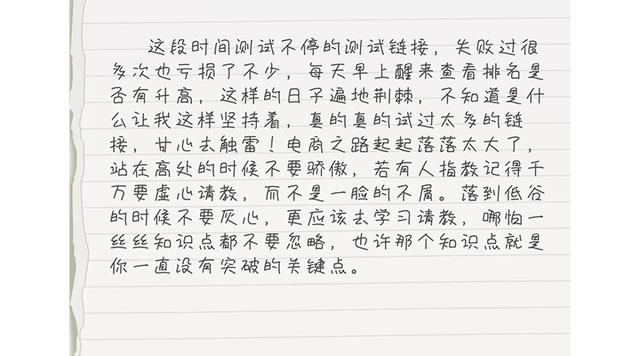 这段时间测试不停的测试链接，失败过很
多次也亏损了不少，每天早上醒来查看排名是
否有升高，这样的日子遍地荆棘，不知道是什
么让我这样坚持着，真的真的试过太多的链
接，甘心去触雷！电商之路起起落落太大了，
站在高处的时候不要骄傲，若有人指教记得千
万要虚心请教，而不是一脸的不屑。落到低谷
的时候不要灰心，更应该去学习请教，哪怕一
丝丝知识点都不要忽略，也许那个知识点就是
你一直没有突破的关键点。